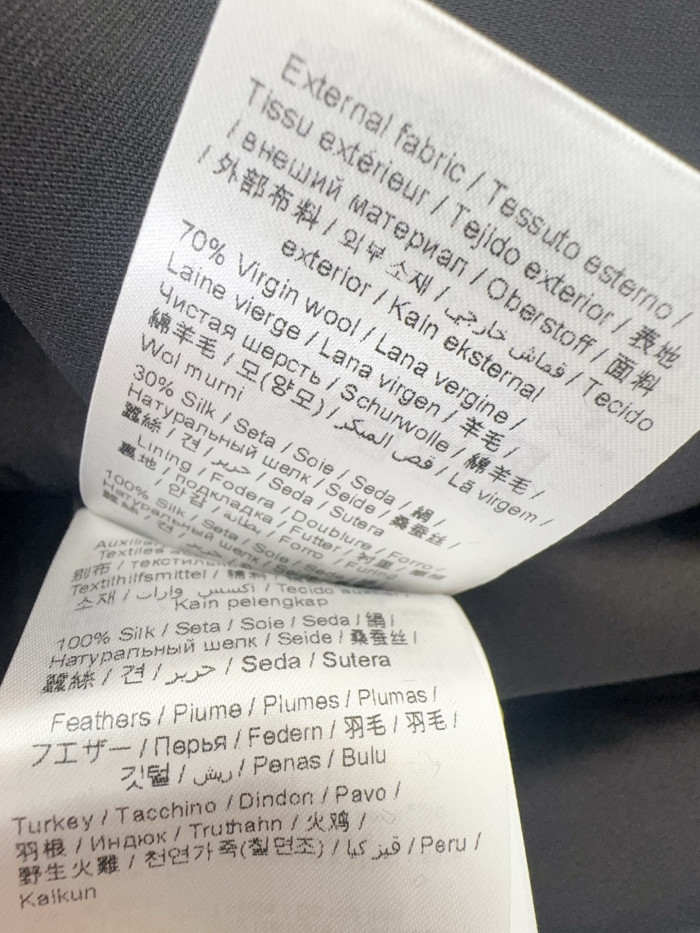 External fabric / Tessuto esterno /
Tissu extérieur / Tejido exterior / 表地
/ внешний материал / Oberstoff / 面料
/ 外部布料 / 외부 소재 / قماش خارجي / Tecido
exterior / Kain eksternal
70% Virgin wool / Lana vergine /
Laine vierge / Lana virgen / 羊毛 /
Чистая шерсть / Schurwolle / 綿羊毛 /
綿羊毛 / 모(양모) / قص المبكر / Lã virgem /
Wol murni
30% Silk / Seta / Soie / Seda / 絹 /
Натуральный шелк / Seide / 桑蚕丝 /
蠶絲 / 견 / حرير / Seda / Sutera
Lining / Fodera / Doublure / Forro /
裏地 / подкладка / Futter / 衬里 /
/ 안감 / بطانة / Forro / Furing
100% Silk / Seta / Soie / Seda
Натуральный шелк /
蠶絲 / 견 /
Textiles
别布 /
Textilhilfsmittel /
소재 / اكسسوارات / Tecido
Kain pelengkap
100% Silk / Seta / Soie / Seda / 絹 /
Натуральный шелк / Seide / 桑蚕丝 /
蠶絲 / 견 / حرير / Seda / Sutera
Feathers / Piume / Plumes / Plumas /
フエザー / Перья / Federn / 羽毛 / 羽毛 /
깃털 / ريش / Penas / Bulu
Turkey / Tacchino / Dindon / Pavo /
羽根 / Индюк / Truthahn / 火鸡 /
野生火雞 / 천연가죽(칠면조) / قيز كيا / Peru /
Kalkun